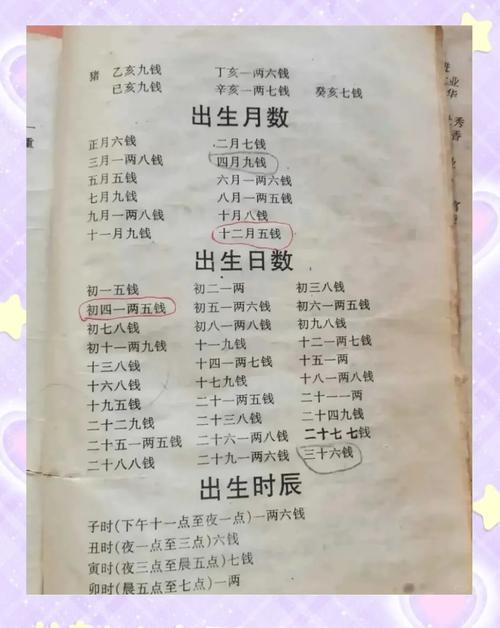 猪 乙亥九钱 丁亥一两六钱
已亥九钱 辛亥一两七钱 癸亥七钱
出生月数
正月六钱 二月七钱
三月一两八钱 四月九钱
五月五钱 六月一两六钱
七月九钱 八月一两五钱
九月一两八钱 十月八钱
十一月九钱 十二月五钱
出生日数
初一五钱 初二一两 初三八钱
初四一两五钱 初五一两六钱 初六一两五钱
初七八钱 初八一两八钱 初九八钱
初十一两九钱 十一九钱 十二一两七钱
十三八钱 十四一两七钱 十五一两
十六八钱 十七九钱 十八一两八钱
十九五钱 二十一两五钱 二十一一两
二十二九钱 二十三八钱 二十四九钱
二十五一两五钱 二十六一两八钱 二十七七钱
二十八八钱 二十九一两六钱 三十六钱
出生时辰
子时(下午十一点至夜一点)一两六钱
丑时(夜一点至三点)六钱
寅时(夜三点至晨五点)七钱
卯时(晨五点至七点)一两
重
业
华
秀
香